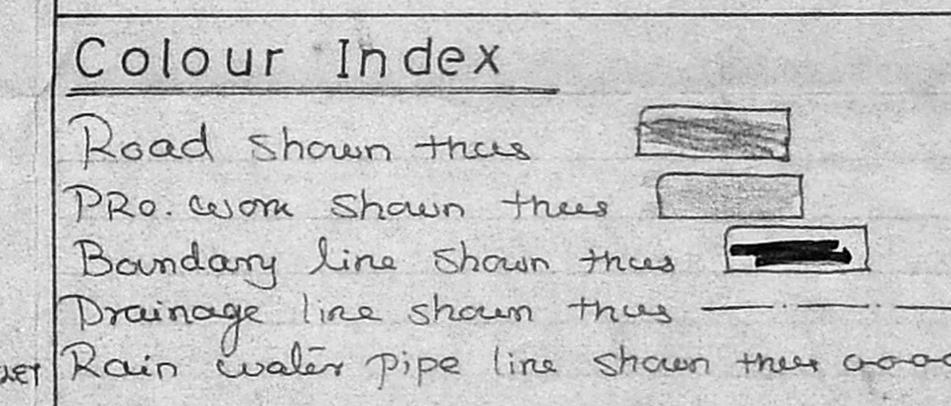 Colour Index
Road shown thus
PRO. work shown thus
Boundary line shown thus
Drainage line shown thus
Rain water pipe line shown thus